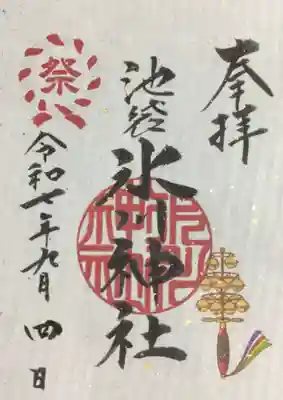 奉拝
池袋
氷川神社
令和七年九月四日
祭